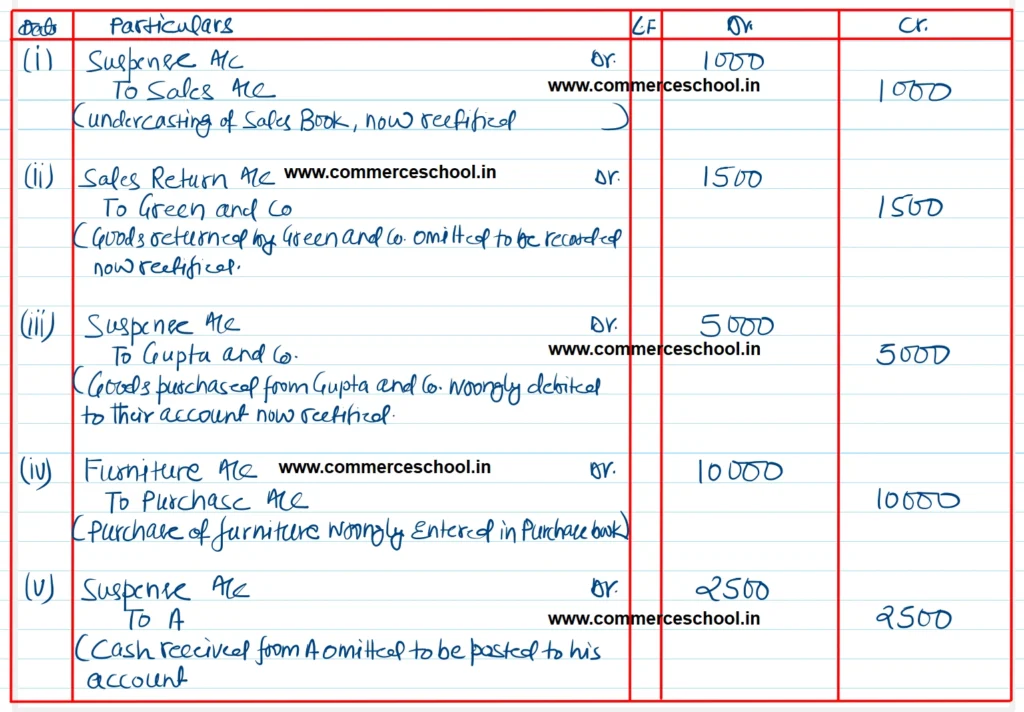 Date Particulars L.F Dr. Cr.
(i) Suspense A/c Dr. 1000
To Sales A/c www.commerceschool.in 1000
(undercasting of Sales Book, now rectified)
(ii) Sales Return A/c www.commerceschool.in Dr. 1500
To Green and Co 1500
(Goods returned by Green and Co. omitted to be recorded
now rectified.
(iii) Suspense A/c Dr. 5000
To Gupta and Co. www.commerceschool.in 5000
(Goods purchased from Gupta and Co. wrongly debited
to their account now rectified.
(iv) Furniture A/c www.commerceschool.in Dr. 10000
To Purchase A/c 10000
(Purchase of furniture wrongly Entered in Purchase book)
(v) Suspense A/c Dr. 2500
To A www.commerceschool.in 2500
(Cash received from A omitted to be posted to his
account